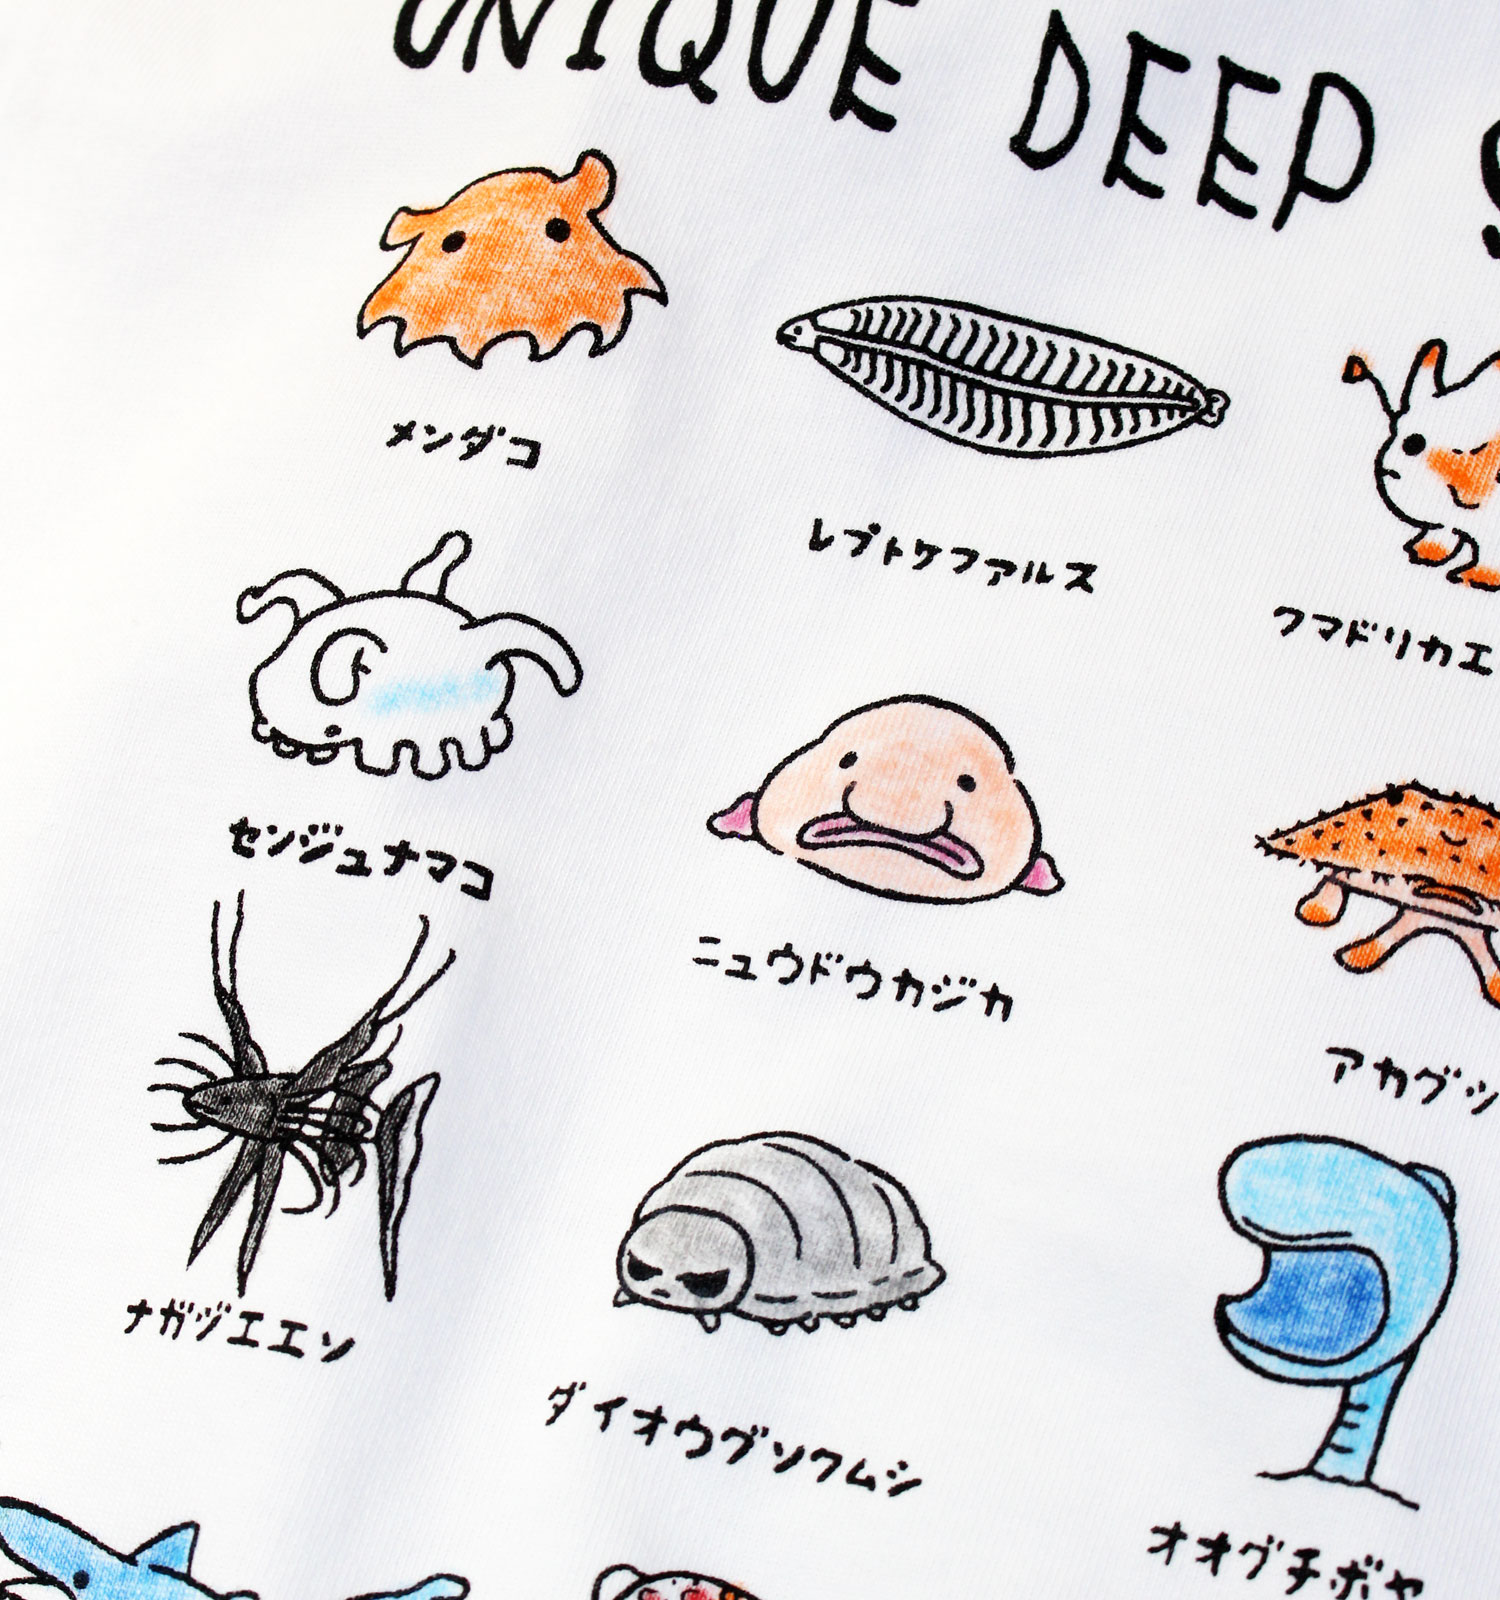 UNIQUE DEEP
メンダコ
レプトケファルス
クマドリカエ
センジュナマコ
ニュウドウカジカ
アカグツ
ナガヅエエソ
ダイオウグソクムシ
オオグチボヤ